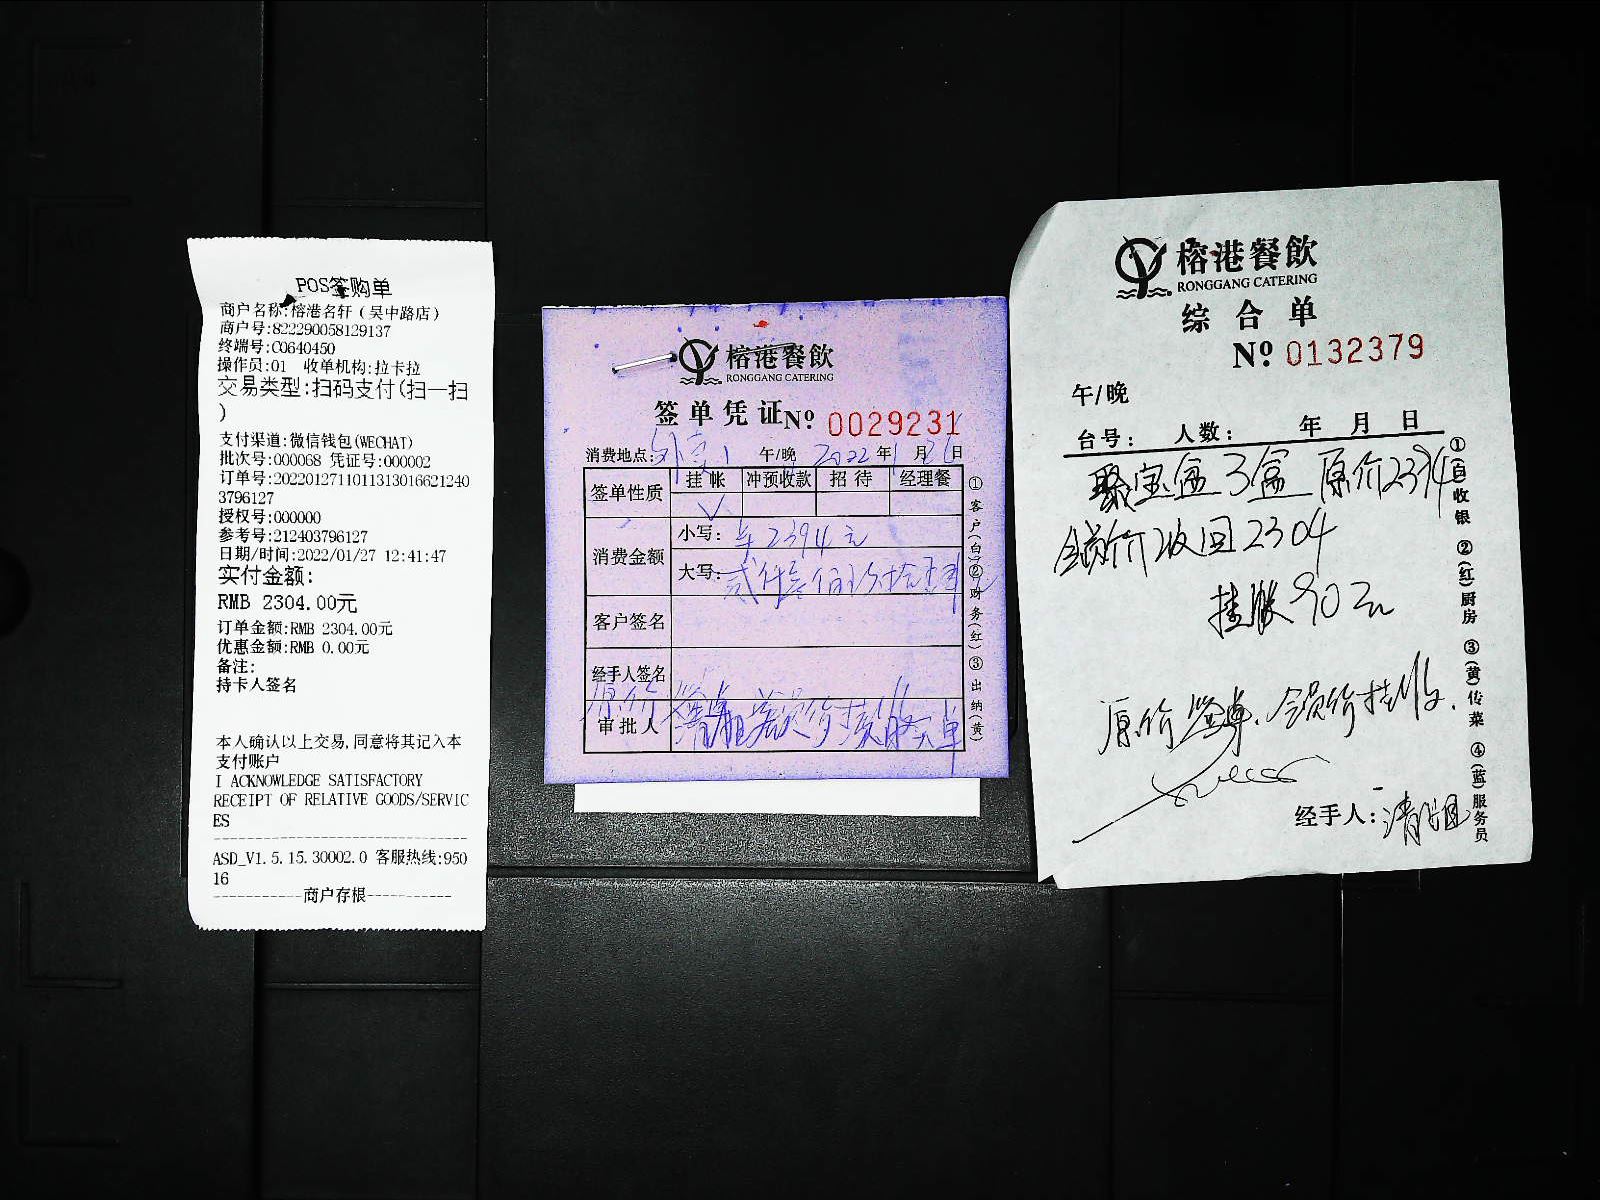 POS签购单
商户名称:榕港名轩（吴中路店）
商户号:822290058129137
终端号:C0640450
操作员:01 收单机构:拉卡拉
交易类型:扫码支付(扫一扫
)
支付渠道:微信钱包(WECHAT)
批次号:000068 凭证号:000002
订单号:20220127110113130166212403796127
授权号:000000
参考号:212403796127
日期/时间:2022/01/27 12:41:47
实付金额:
RMB 2304.00元
订单金额:RMB 2304.00元
优惠金额:RMB 0.00元
备注:
持卡人签名
本人确认以上交易,同意将其记入本
支付账户
I ACKNOWLEDGE SATISFACTORY
RECEIPT OF RELATIVE GOODS/SERVIC
ES
ASD_V1.5.15.30002.0 客服热线:950
16
商户存根
榕港餐飲
RONGGANG CATERING
签单凭证 № 0029231
消费地点: 外卖1 午/晚 2022年1月26日
签单性质 挂帐 冲预收款 招待 经理餐
消费金额
小写: 2394元
大写: 贰仟叁佰玖拾肆元
客户签名
经手人签名
审批人
原价签单
①客户(白)②财务(红)③出纳(黄)
榕港餐飲
RONGGANG CATERING
综合单
№ 0132379
午/晚
台号: 人数: 年 月 日
聚宝盆3盒 原价2394
会员价收回2304
挂账90元
原价签单、会员价挂账.
经手人:
①(白)收银 ②(红)厨房 ③(黄)传菜 ④(蓝)服务员